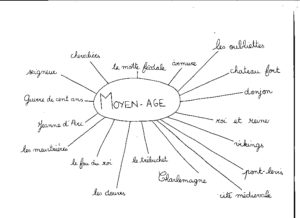 les oubliettes
chevaliers
la motte féodale
armure
seigneur
chateau fort
donjon
Guerre de cent ans
MOYEN-AGE
Jeanne d'Arc
roi et reine
les meurtrières
vikings
le fou du roi
le trébuchet
pont-levis
Charlemagne
les douves
cité médiévale